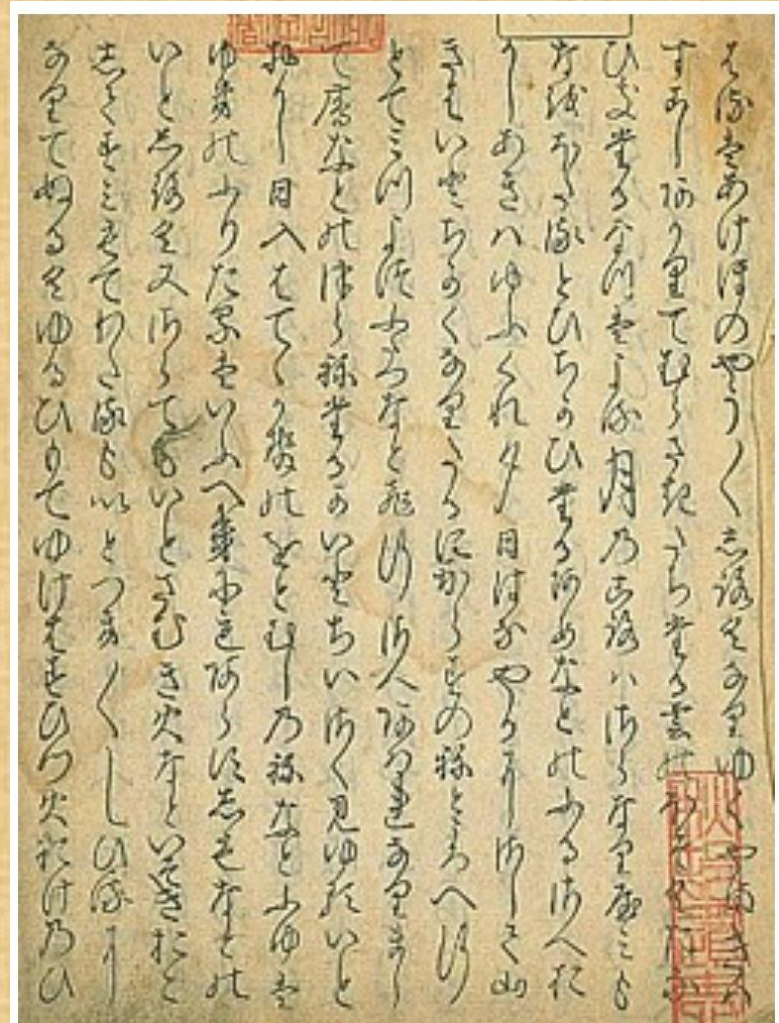 はるはあけほのやう／＼しろくなりゆくやまきは
すこしあかりてむらさきたちたる雲のほそくたな
ひきたるなつはよる月のころはさらなりやみも
なをほたるとひちかひたるあめなとのふるさへお
かしあきはゆふくれ夕日はなやかにさして山
きはいとちかくなりたるにからすのねところへ行
とてみつよつふたつなと飛行さへあはれなりまし
て雁なとのつらねたるかいとちいさく見ゆるいと
おかし日入はてゝかせのをとむしのねなとふゆは
ゆきのふりたるはいふへきにもあらすしもなとの
いとしろく又さらてもいとさむき火なといそきおこ
しすみもてわたるもいとつき／＼しひるに
なりてぬるくゆるひもてゆけはすひつ火おけのひ